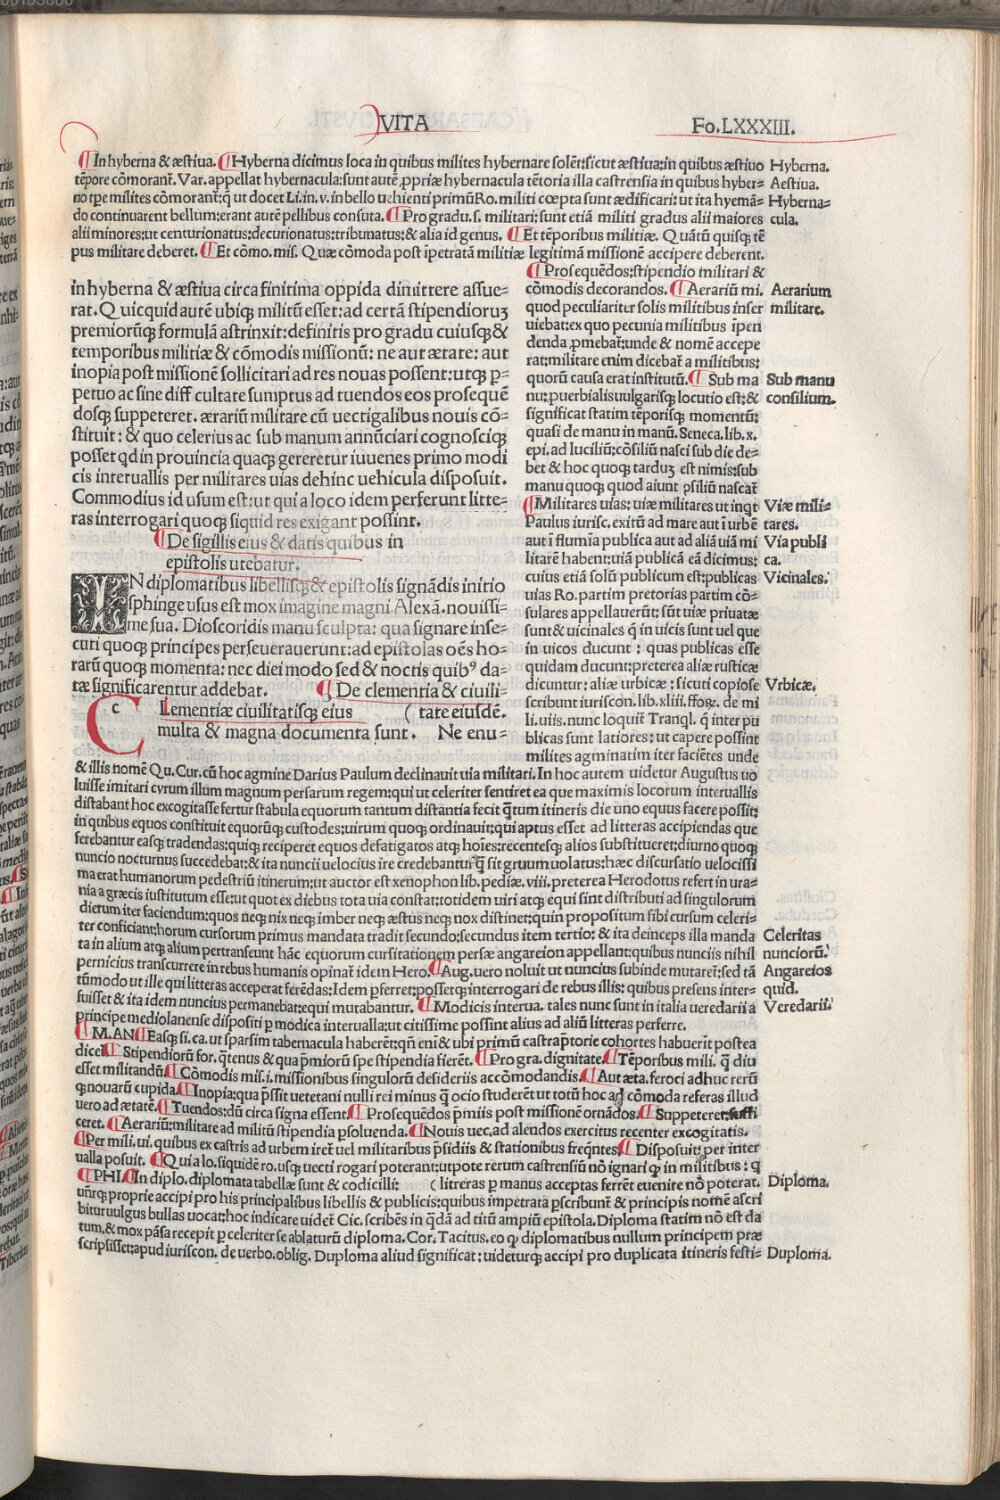 VITA
Fo.LXXXIII.
¶In hyberna & æstiua. ¶Hyberna dicimus loca in quibus milites hybernare solēt: sicut æstiua: in quibus æstiuo Hyberna.
tēpore cōmorant̄. Var. appellat hybernacula: sunt autē ꝓpriæ hybernacula tētoria illa castrensia in quibus hyber= Aestiua.
no tpe milites cōmorant̄: q̄ ut docet Li. in. v. in bello uehienti primū Ro. militi cœpta sunt ædificari: ut ita hyemā= Hyberna=
do continuarent bellum: erant autē pellibus consuta. ¶Pro gradu. s. militari: sunt etiā militi gradus alii maiores cula.
alii minores: ut centurionatus: decurionatus: tribunatus: & alia id genus. ¶Et tēporibus militiæ. Quātū quisq; tē
pus militare deberet. ¶Et cōmo. mis. Quæ cōmoda post īpetratā militiæ legitimā missionē accipere deberent.
in hyberna & æstiua circa finitima oppida dimittere assue=
rat. Quicquid autē ubiq; militū esset: ad certā stipendioruꝫ
premiorūq; formulā astrinxit: definitis pro gradu cuiusq; &
temporibus militiæ & cōmodis missionū: ne aut ætate: aut
inopia post missionē sollicitari ad res nouas possent: utq; ꝑ=
petuo ac sine difficultate sumptus ad tuendos eos prosequē
dosq; suppeteret. ærariū militare cū uectigalibus nouis cō=
stituit: & quo celerius ac sub manum annūciari cognosciq;
posset qd in prouincia quaq; gereretur iuuenes primo modi
cis interuallis per militares uias dehinc uehicula disposuit.
Commodius id usum est: ut qui a loco idem perferunt litte=
ras interrogari quoq; siquid res exigant possint.
¶De sigillis eius & datis quibus in
epistolis utebatur.
IN diplomatibus libellisq; & epistolis signādis initio
sphinge usus est mox imagine magni Alexā. nouissi=
me sua. Dioscoridis manu sculpta: qua signare inse=
cuti quoq; principes perseuerauerunt: ad epistolas oēs ho=
rarū quoq; momenta: nec diei modo sed & noctis quibꝰ da=
tæ significarentur addebat. ¶De clementia & ciuili=
CLementiæ ciuilitatisq; eius ( tate eiusdē.
multa & magna documenta sunt. Ne enu=
¶Prosequēdos: stipendio militari &
cōmodis decorandos. ¶Aerariū mi. Aerarium
quod peculiariter solis militibus inser militare.
uiebat: ex quo pecunia militibus īpen
denda ꝓmebat̄: unde & nomē accepe
rat: militare enim dicebat̄ a militibus:
quorū causa erat institutū. ¶Sub ma Sub manu
nu: puerbialis uulgarisq; locutio est: & consilium.
significat statim tēporisq; momentū:
quasi de manu in manū. Seneca. lib. x.
epi. ad luciliū: cōsiliū nasci sub die de=
bet & hoc quoq; tarduꝫ est nimis: sub
manu quoq; quod aiunt ꝓsiliū nascat̄
¶Militares uias: uiæ militares ut inqt Viæ mili=
Paulus iurisc. exitū ad mare aut ī urbē tares.
aut ī flumīa publica aut ad aliā uiā mi Via publi
litarē habent: uiā publicā eā dicimus: ca.
cuius etiā solū publicum est: publicas Vicinales.
uias Ro. partim pretorias partim cō=
sulares appellauerūt: sūt uiæ priuatæ
sunt & uicinales q̄ in uicis sunt uel que
in uicos ducunt : quas publicas esse
quidam ducunt: preterea aliæ rusticæ
dicuntur: aliæ urbicæ: sicuti copiose Vrbicæ.
scribunt iuriscon. lib. xliii. ffoꝝ. de mi
li. uiis. nunc loquit̄ Tranql. q̄ inter pu
blicas sunt latiores: ut capere possint
milites agminatim iter faciētes unde
& illis nomē Qu. Cur. cū hoc agmine Darius Paulum declinauit uia militari. In hoc autem uidetur Augustus uo
luisse imitari cyrum illum magnum persarum regem: qui ut celeriter sentiret ea que maximis locorum interuallis
distabant hoc excogitasse fertur stabula equorum tantum distantia fecit q̄tum itineris die uno equus facere possit:
in quibus equos constituit equorūq; custodes: uirum quoq; ordinauit: qui aptus esset ad litteras accipiendas que
ferebantur easq; tradendas: quiq; reciperet equos defatigatos atq; hoīes: recentesq; alios substitueret: diurno quoq;
nuncio nocturnus succedebat: & ita nuncii uelocius ire credebantur q̄ sit gruum uolatus: hæc discursatio uelocissi
ma erat humanorum pedestriū itinerum: ut auctor est xenophon lib. pediæ. viii. preterea Herodotus refert in ura=
nia a græcis iustitutum esse: ut quot ex diebus tota uia constat: totidem uiri atq; equi sint distributi ad singulorum
dierum iter faciendum: quos neq; nix neq; imber neq; æstus neq; nox distinet: quin propositum sibi cursum celeri=
ter conficiant: horum cursorum primus mandata tradit secundo: secundus item tertio: & ita deinceps illa manda Celeritas
ta in alium atq; alium pertranseunt hāc equorum cursitationem persæ angareion appellant: quibus nunciis nihil nunciorū.
pernicius transcurrere in rebus humanis opinat̄ idem Hero. ¶Aug. uero noluit ut nuncius subinde mutaret̄: sed tā Angareios
tūmodo ut ille qui litteras acceperat ferēdas: Idem pferret: possetq; interrogari de rebus illis: quibus presens inter= quid.
fuisset & ita idem nuncius permanebat: equi mutabantur. ¶Modicis interua. tales nunc sunt in italia ueredarii a Veredarii.
principe mediolanense dispositi p modica interualla: ut citissime possint alius ad aliū litteras perferre.
¶M.AN¶Easq; si. ca. ut sparsim tabernacula haberēt: qn̄ eni & ubi primū castra p̄torie cohortes habuerīt postea
dicet̄ ¶Stipendiorū for. q̄tenus & qua p̄miorū spe stipendia fierēt. ¶Pro gra. dignitate ¶Tēporibus mili. q̄ diu
esset militandū. ¶Cōmodis mis. i. missionibus singulorū desideriis accōmodandis. ¶Aut æta. feroci adhuc rerū
q; nouarū cupida. ¶Inopia: qua p̄ssit uetetani nulli rei minus q̄ ocio studerēt ut totū hoc ad cōmoda referas illud
uero ad ætatē. ¶Tuendos: dū circa signa essent. ¶Prosequēdos p̄miis post missionē ornādos. ¶Suppeteret: suffi
ceret. ¶Aerariū: militare ad militū stipendia ꝑsoluenda. ¶Nouis uec, ad alendos exercitus recenter excogitatis.
¶Per mili. ui. quibus ex castris ad urbem iret̄ uel militaribus p̄sidiis & stationibus freq̄ntes ¶Disposuit: per inter
ualla posuit. ¶Qui a lo. siquidē ro. usq; uecti rogari poterant: utpote rerum castrensiū nō ignari q; in militibus : q̄
¶PHI. ¶In diplo. diplomata tabellæ sunt & codicilli: ( litreras p manus acceptas ferrēt euenire nō poterat. Diploma.
uūrq; proprie accipi pro his principalibus libellis & publicis: quibus impetrata p̄scribunt̄ & principis nomē ascri
bitur uulgus bullas uocat: hoc indicare uidet̄ Cic. scribēs in q̄dā ad titū ampiū epistola. Diploma statim nō est da
tum, & mox pāsa recepit ꝑ celeriter se ablaturū diploma. Cor. Tacitus. eo q̄ diplomatibus nullum principem præ
scripsisset: apud iuriscon. de uerbo. oblig. Duploma aliud significat: uideturq; accipi pro duplicata itineris festi= Duploma.